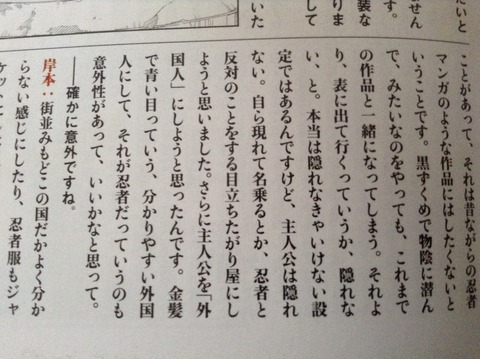 たいと
ません
す。
装な
りま
して
いた
ことがあって、それは昔ながらの忍者
マンガのような作品にはしたくないと
いうことです。黒ずくめで物陰に潜ん
で、みたいなのをやっても、これまで
の作品と一緒になってしまう。それよ
り、表に出て行くっていうか、隠れな
い、と。本当は隠れなきゃいけない設
定ではあるんですけど、主人公は隠れ
ない。自ら現れて名乗るとか、忍者と
反対のことをする目立ちたがり屋にし
ようと思いました。さらに主人公を「外
国人」にしようと思ったんです。金髪
で青い目っていう、分かりやすい外国
人にして、それが忍者だっていうのも
意外性があって、いいかなと思って。
――確かに意外ですね。
岸本：街並みもどこの国だかよく分か
らない感じにしたり、忍者服もジャ
ケッ